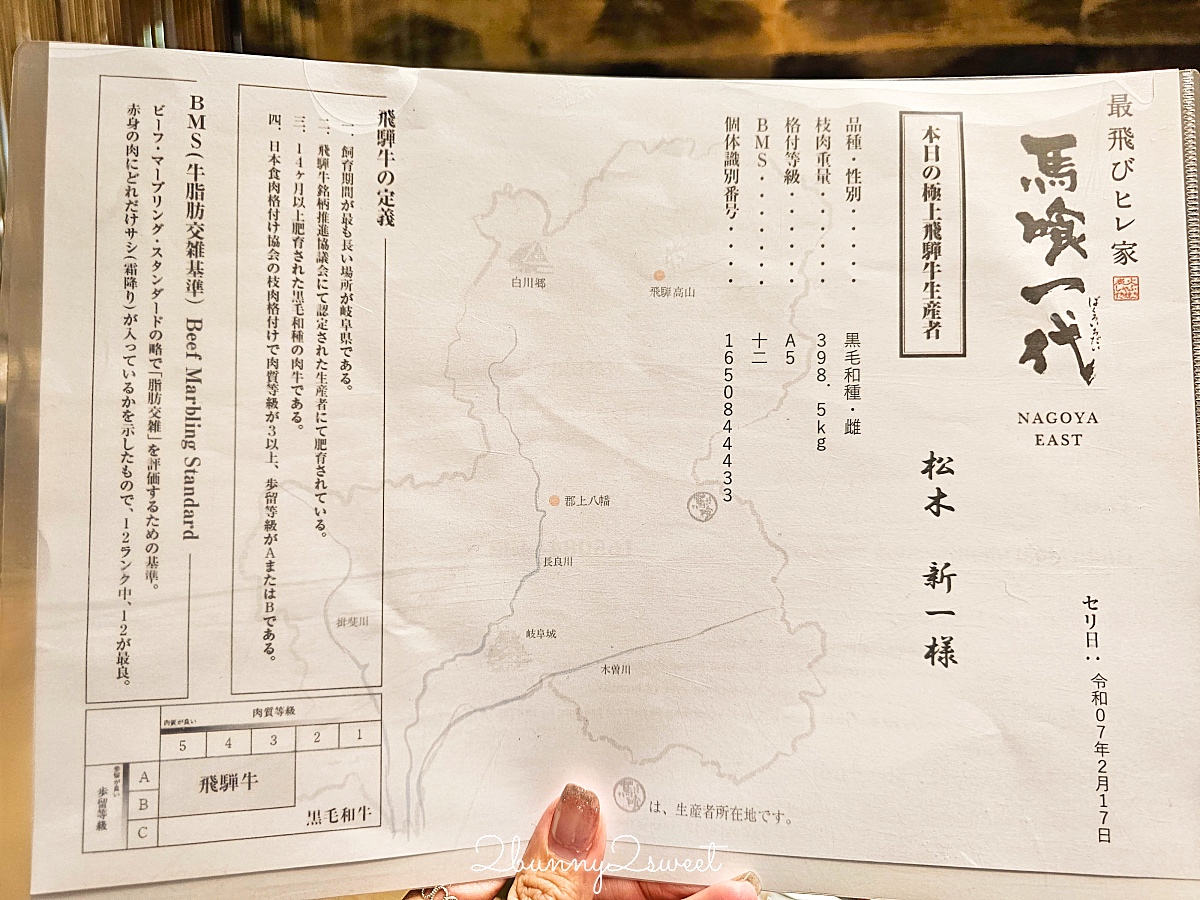 最飛びヒレ家
馬喰一代
ばくろいちだい
NAGOYA
EAST
セリ日：令和07年2月17日
本日の極上飛騨牛生産者
松木 新一様
品種・性別・・・・ 黒毛和種・雌
枝肉重量・・・・・ 398.5kg
格付等級・・・・・ A5
BMS・・・・・・ 十二
個体識別番号・・・ 1650844433
白川郷
飛騨高山
郡上八幡
長良川
揖斐川
岐阜城
木曽川
は、生産者所在地です。
飛騨牛の定義
一、飼育期間が最も長い場所が岐阜県である。
二、飛騨牛銘柄推進協議会にて認定された生産者にて肥育されている。
三、14ヶ月以上肥育された黒毛和種の肉牛である。
四、日本食肉格付け協会の枝肉格付けで肉質等級が3以上、歩留等級がAまたはBである。
BMS(牛脂肪交雑基準) Beef Marbling Standard
ビーフ・マーブリング・スタンダードの略で「脂肪交雑」を評価するための基準。
赤身の肉にどれだけサシ(霜降り)が入っているかを示したもので、12ランク中、12が最良。
肉質等級
肉質が良い
5 4 3 2 1
歩留が良い
歩留等級
A
B
C
飛騨牛
黒毛和牛
2bunny2sweet